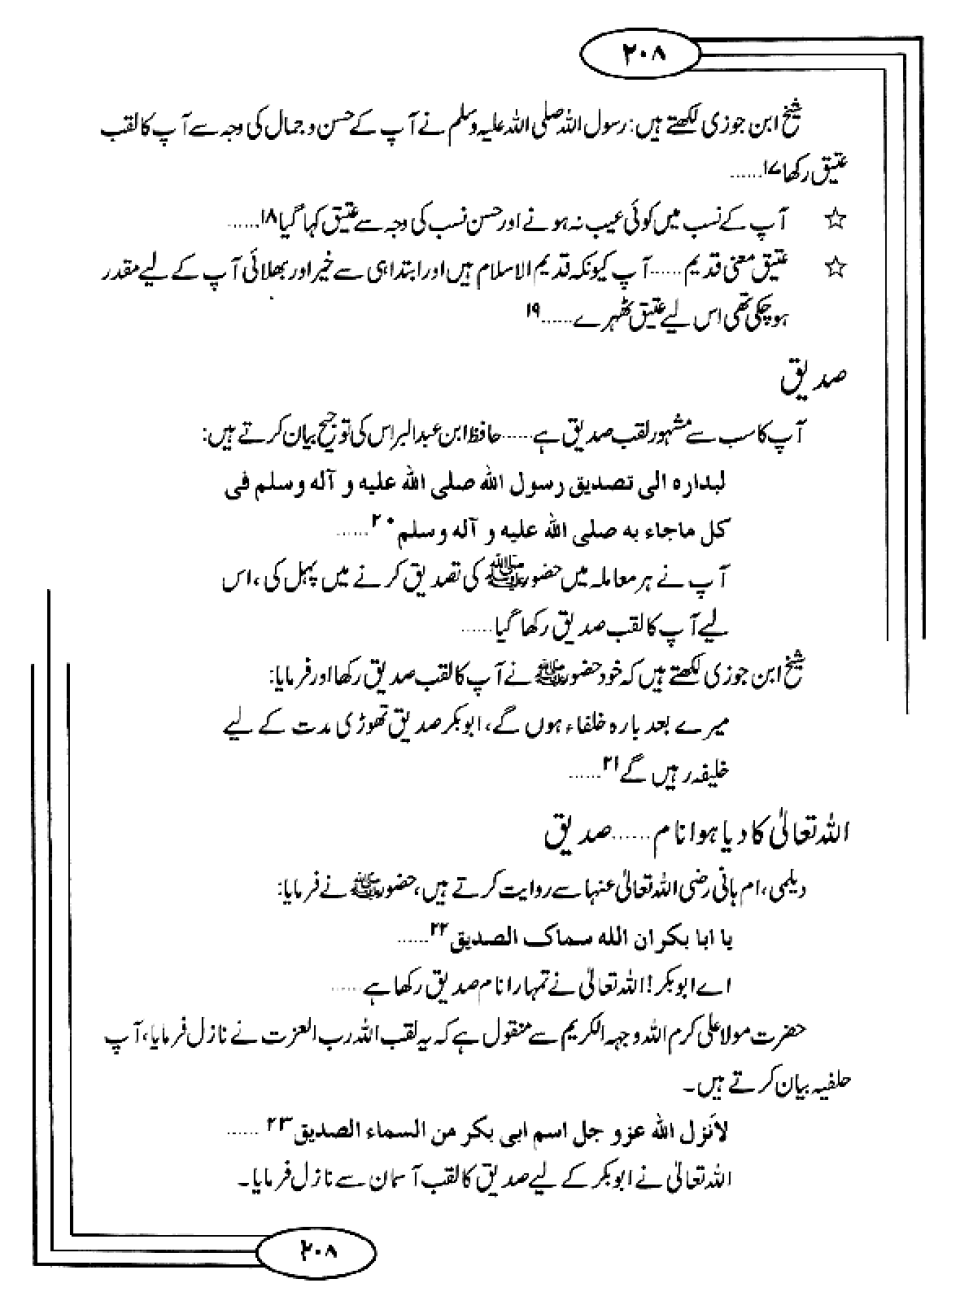 ۲۰۸
شیخ ابن جوزی لکھتے ہیں: رسول اللہ صلی اللہ علیہ وسلم نے آپ کے حسن و جمال کی وجہ سے آپ کا لقب
عتیق رکھا۱۷......
☆ آپ کے نسب میں کوئی عیب نہ ہونے اور حسن نسب کی وجہ سے عتیق کہا گیا۱۸......
☆ عتیق معنی قدیم......آپ کیونکہ قدیم الاسلام ہیں اور ابتدا ہی سے خیر اور بھلائی آپ کے لیے مقدر
ہو چکی تھی اس لیے عتیق ٹھہرے......۱۹
صدیق
آپ کا سب سے مشہور لقب صدیق ہے......حافظ ابن عبدالبر اس کی توجیح بیان کرتے ہیں:
لبدارہ الی تصدیق رسول اللہ صلی اللہ علیہ و آلہ وسلم فی
کل ماجاء بہ صلی اللہ علیہ و آلہ وسلم۲۰......
آپ نے ہر معاملہ میں حضور ﷺ کی تصدیق کرنے میں پہل کی، اس
لیے آپ کا لقب صدیق رکھا گیا......
شیخ ابن جوزی لکھتے ہیں کہ خود حضور ﷺ نے آپ کا لقب صدیق رکھا اور فرمایا:
میرے بعد بارہ خلفاء ہوں گے، ابوبکر صدیق تھوڑی مدت کے لیے
خلیفہ رہیں گے۲۱......
اللہ تعالیٰ کا دیا ہوا نام......صدیق
دیلمی، ام ہانی رضی اللہ تعالیٰ عنہا سے روایت کرتے ہیں، حضور ﷺ نے فرمایا:
یا ابا بکر ان اللہ سماک الصدیق۲۲......
اے ابوبکر! اللہ تعالیٰ نے تمہارا نام صدیق رکھا ہے......
حضرت مولا علی کرم اللہ وجہہ الکریم سے منقول ہے کہ یہ لقب اللہ رب العزت نے نازل فرمایا، آپ
حلفیہ بیان کرتے ہیں۔
لأنزل اللہ عزو جل اسم ابی بکر من السماء الصدیق۲۳......
اللہ تعالیٰ نے ابوبکر کے لیے صدیق کا لقب آسمان سے نازل فرمایا۔
۲۰۸